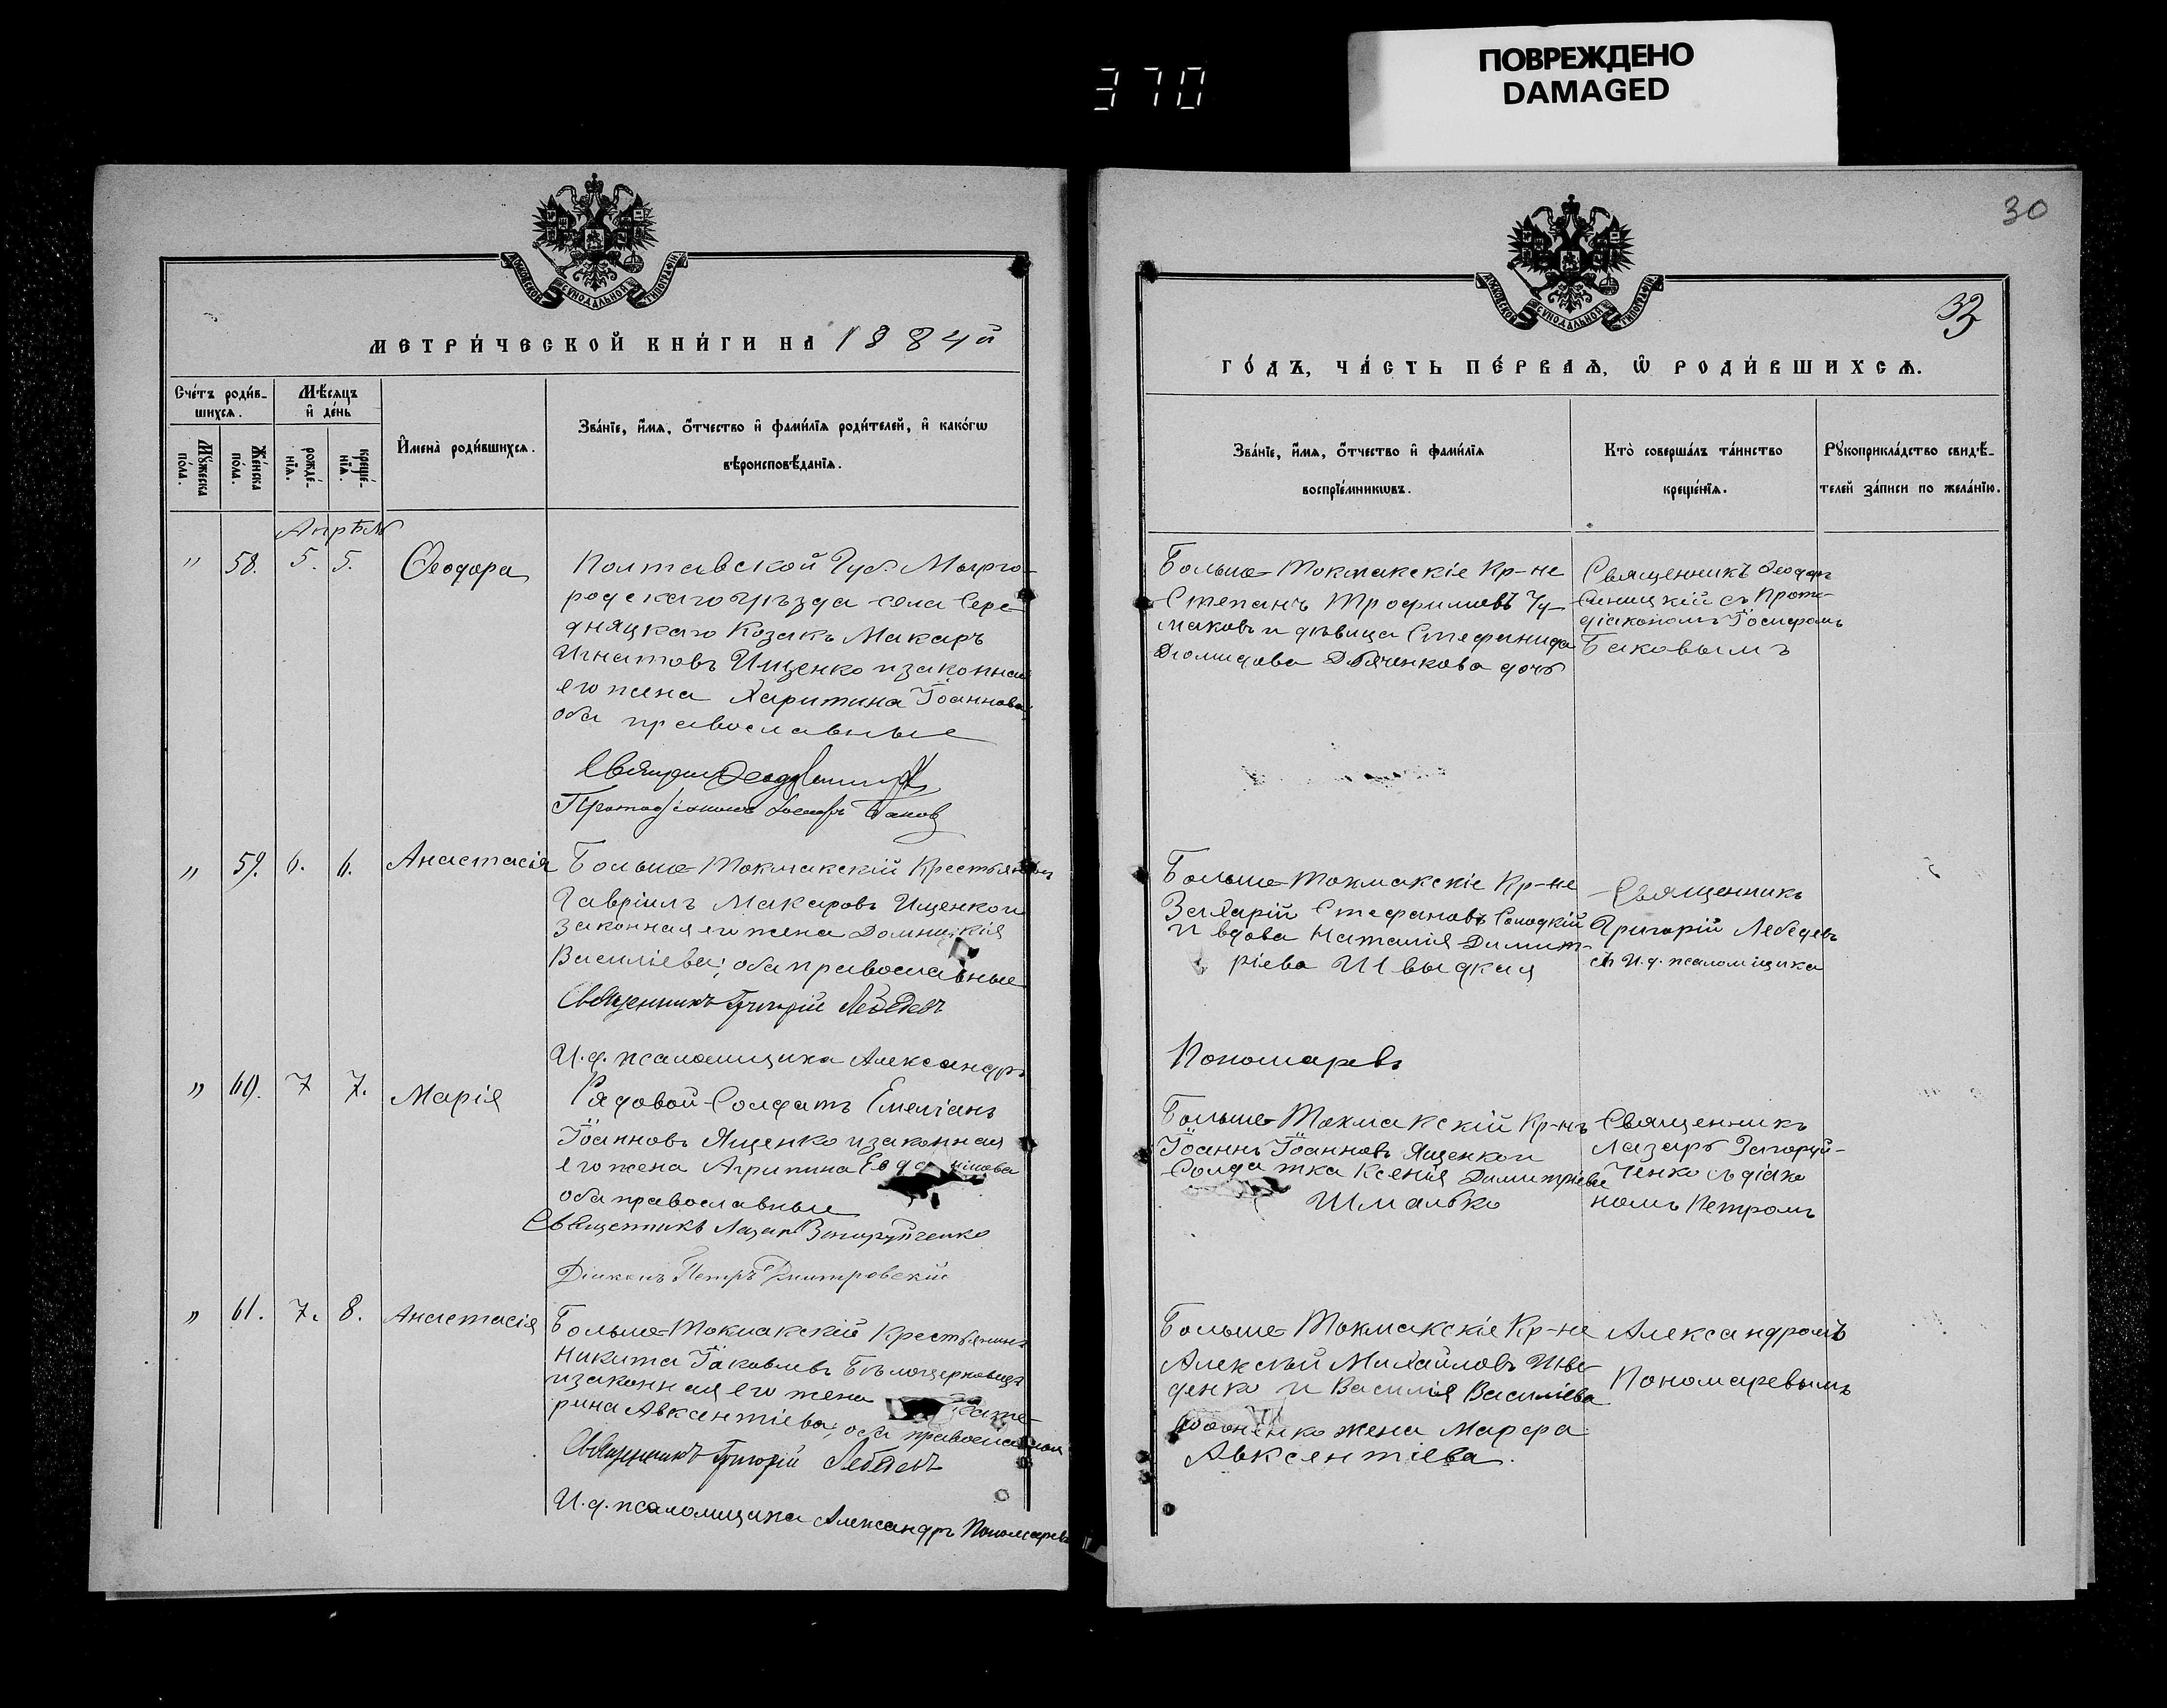 370
ПОВРЕЖДЕНО
DAMAGED
МОСКОВСКОЙ СѴНОДАЛЬНОЙ ТИПОГРАФІИ
МЕТРИ́ЧЕСКОЙ КНИ́ГИ НА 1884й
Счéтъ роди́в-
шихсѧ.
Мѣ́сѧцъ
и҆ де́нь
Мꙋ́жеска
по́ла.
Же́нска
по́ла.
рожде́-
нїѧ.
креще́-
нїѧ.
И҆мена̀ роди́вшихсѧ.
Зва́нїе, и҆́мѧ, ѻ҆́тчество и҆ фами́лїѧ роди́телей, и҆ како́гѡ
вѣроисповѣ́данїѧ.
Апрѣль
" 58. 5. 5. Ѳеодора
Полтавской Губ Мирго-
родскаго уѣзда села Сере-
дняцкаго Козакъ Макаръ
Игнатовъ Ищенко и законная
его жена Харитина Іоаннова,
оба православные
Протодіаконъ Іосифъ Баковъ
" 59. 6. 6. Анастасія
Больше-Токмакскій Крестьянинъ
Гавріилъ Макаровъ Ищенко и
законная его жена Домникія
Василіева; оба православные
Священникъ Григорій Лебедевъ
И.д. псаломщика Александръ
" 60. 7 7. Марія
Рядовой Солдатъ Емеліанъ
Іоанновъ Ященко и законная
его жена Агрипина
оба православные
Священникъ Лазарь Загоруйченко
Діаконъ Петръ Дмитровскій
" 61. 7. 8. Анастасія
Больше-Токмакскій Крестьянинъ
Никита Іаковлевъ Бѣлоцерковецъ
и законная его жена Екате-
рина Авксентіева; оба православные
Священникъ Григорій Лебедевъ
И.д. псаломщика Александръ Пономаревъ
30
МОСКОВСКОЙ СѴНОДАЛЬНОЙ ТИПОГРАФІИ
33
ГО́ДЪ, ЧА́СТЬ ПЕ́РВАѦ, Ѡ҆ РОДИ́ВШИХСѦ.
Зва́нїе, и҆́мѧ, ѻ҆́тчество и҆ фами́лїѧ
воспрїе́мникѡвъ.
Кто̀ соверша́лъ та́инство
креще́нїѧ.
Рꙋкоприкла́дство свидѣ́-
телей за́писи по жела́нїю.
Больше-Токмакскіе Кр-не
Степанъ Трофимовъ Чу-
маковъ и дѣвица Стефанида
Діомидова Дьяченкова дочь
Священникъ Ѳеодоръ
Синицкій съ Прото-
діакономъ Іосифомъ
Баковымъ
Больше-Токмакскіе Кр-не
Захарій Стефановъ Солодкій
и вдова Наталія Димит-
ріева Швыдкая
Священникъ
Григорій Лебедевъ
съ И.д. псаломщика
Пономаревъ
Больше-Токмакскій Кр-нъ
Іоаннъ Іоанновъ Ященко и
Солдатка Ксенія Димитріева
Шмалько
Священникъ
Лазарь Загоруй-
ченко съ діако
номъ Петромъ
Больше-Токмакскіе Кр-не
Алексѣй Михайловъ Шве-
денко и Василія Василіева
жена Марфа
Авксентіева.
Александромъ
Пономаревымъ